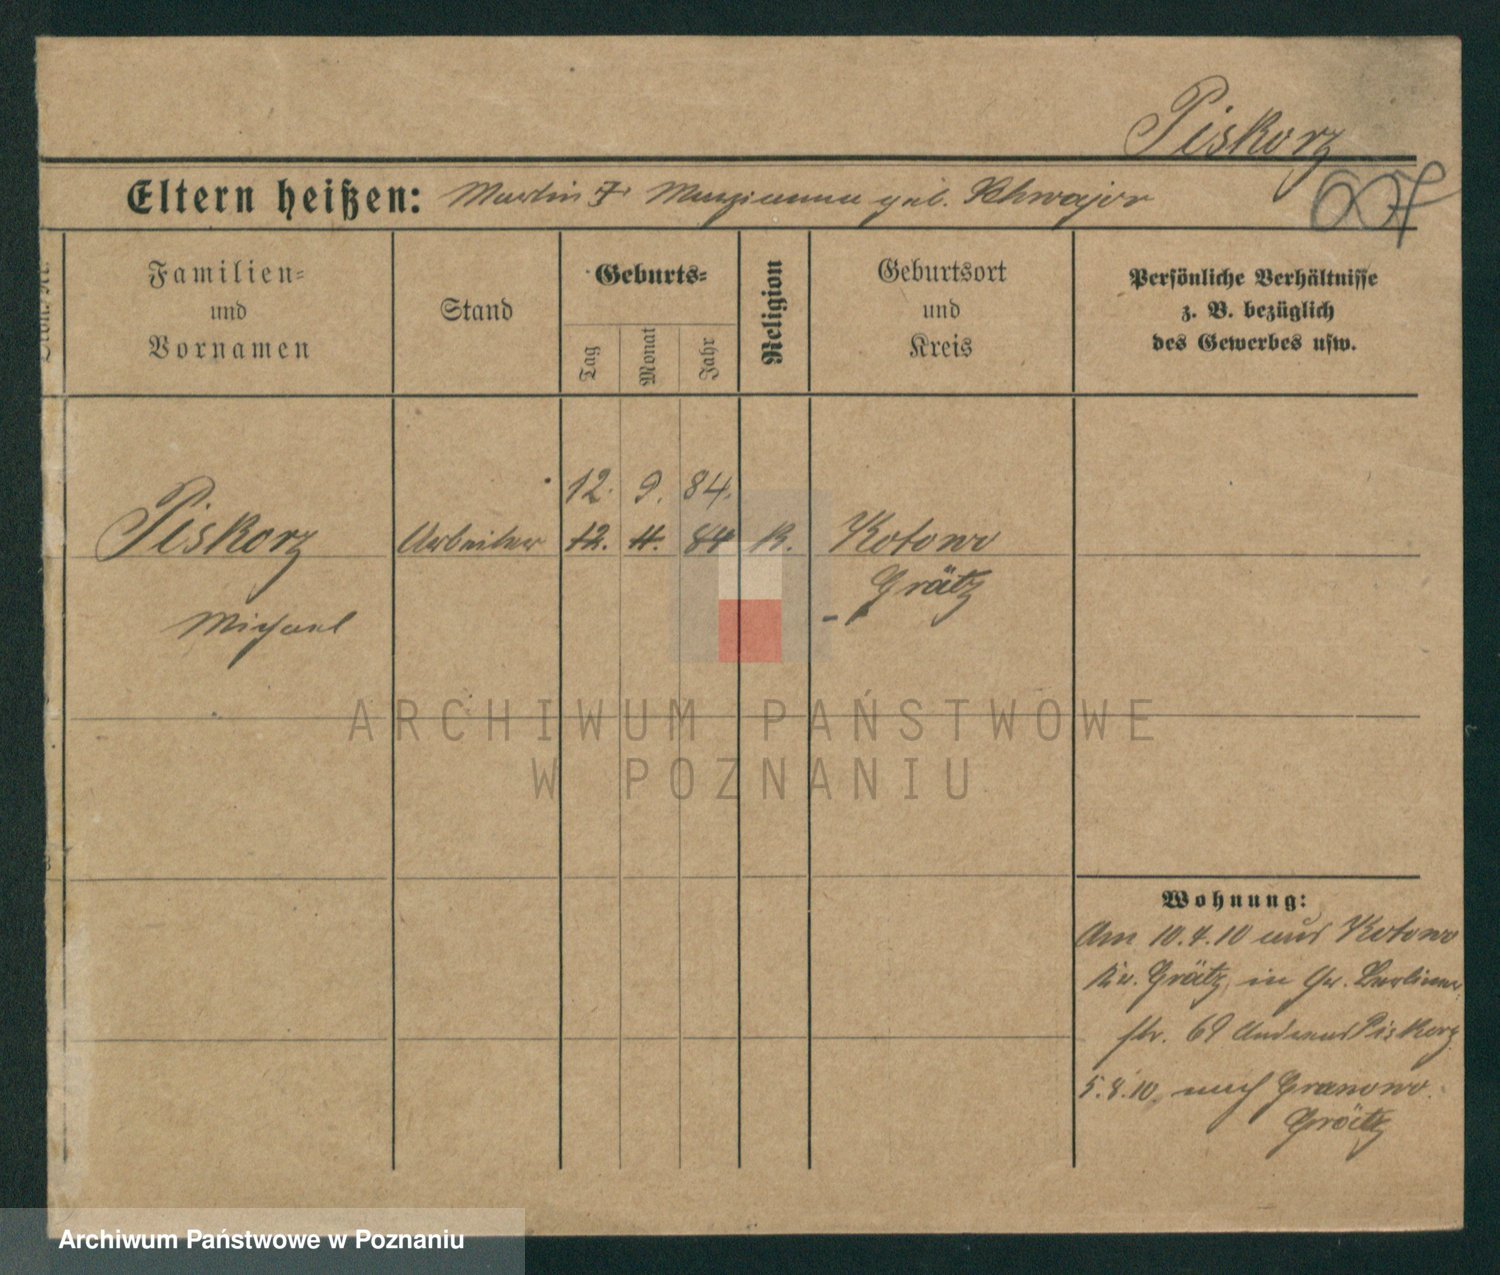 Piskorz
Eltern heißen: Martin † Margianna geb. Schwajor
Familien=
und
Vornamen
Stand
Geburts=
Tag
Monat
Jahr
Religion
Geburtsort
und
Kreis
Persönliche Verhältnisse
z. B. bezüglich
des Gewerbes usw.
12. 9. 84.
Piskorz Arbeiter 12. 4. 84 K. Kotowo
Grätz
Michael
ARCHIWUM PAŃSTWOWE
W POZNANIU
Wohnung:
Am 10.4.10 aus Kotowo
Kr. Grätz in Gr. Berliner
str. 69 Andreas Piskorz
5.8.10. nach Granowo.
Grätz
Archiwum Państwowe w Poznaniu